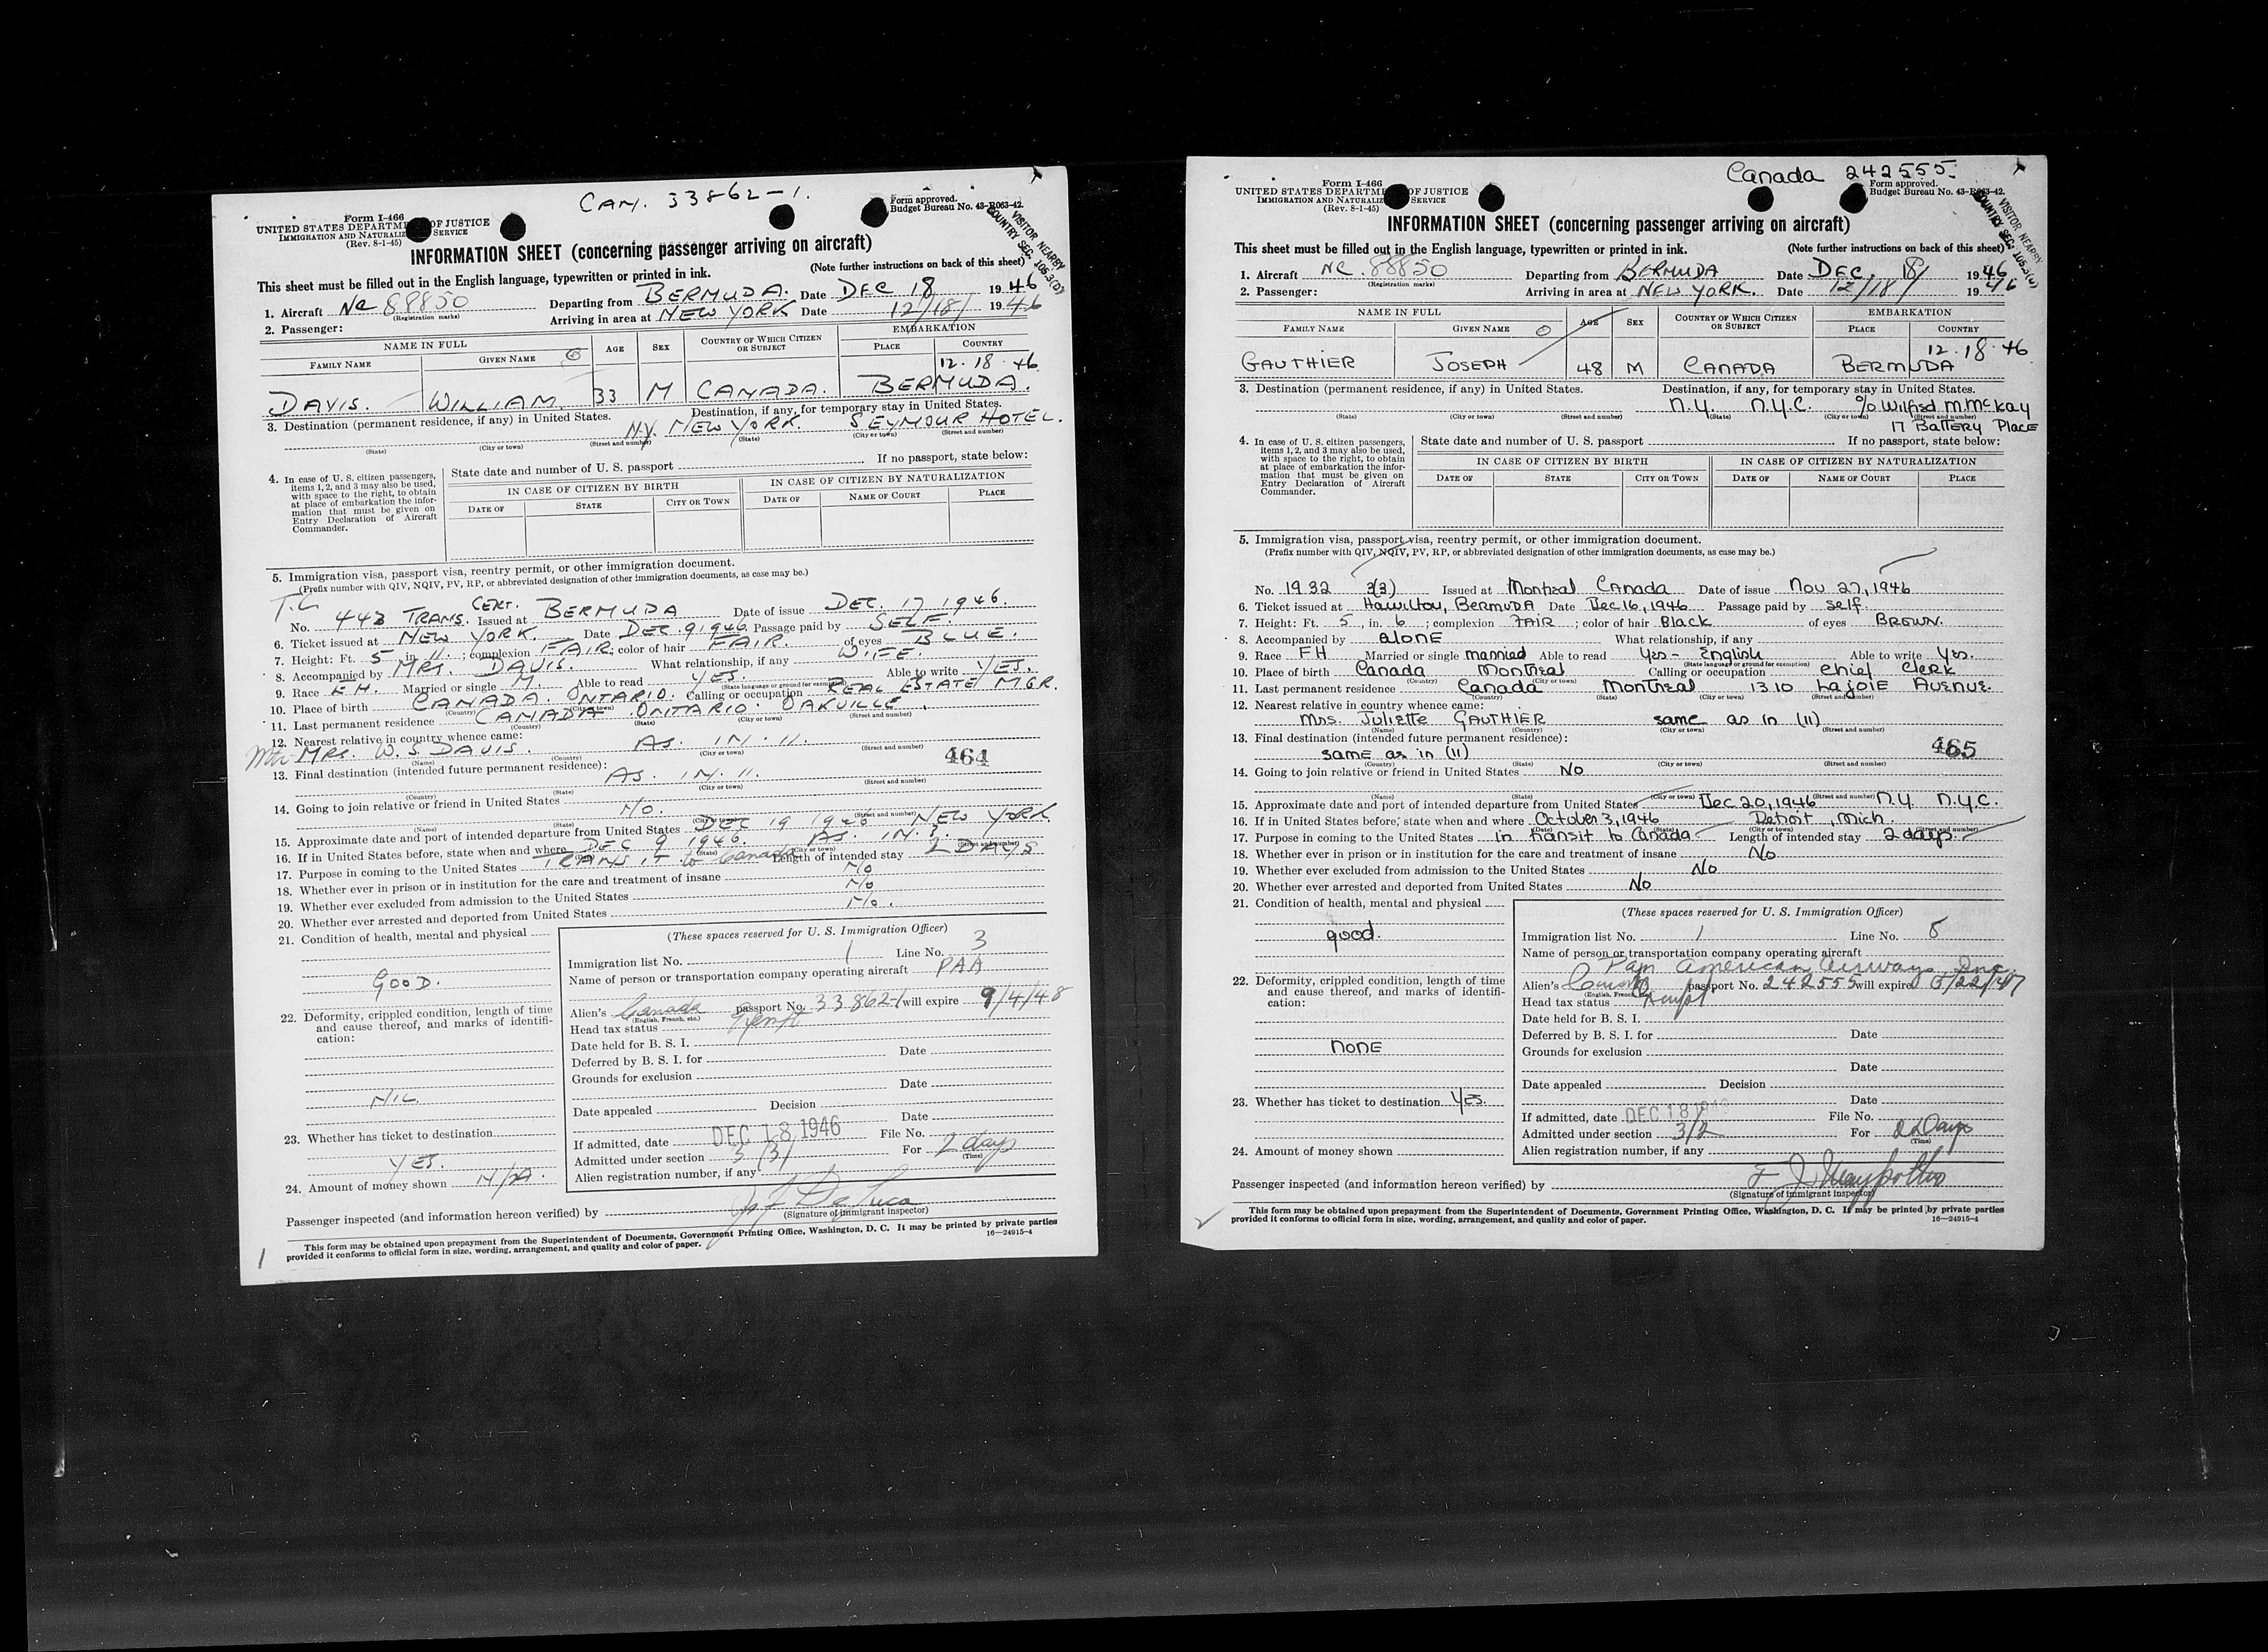 CAN. 33862-1.
Form I-466
UNITED STATES DEPARTME OF JUSTICE
IMMIGRATION AND NATURALIZ SERVICE
(Rev. 8-1-45)
Form approved.
Budget Bureau No. 43-R063-42.
VISITOR NEARBY
COUNTRY SEC. 105.3(D)
INFORMATION SHEET (concerning passenger arriving on aircraft)
This sheet must be filled out in the English language, typewritten or printed in ink. (Note further instructions on back of this sheet)
1. Aircraft NC 88850 Departing from BERMUDA. Date DEC 18 1946
(Registration marks)
2. Passenger: Arriving in area at NEW YORK Date 12/18/ 1946
NAME IN FULL AGE SEX COUNTRY OF WHICH CITIZEN OR SUBJECT EMBARKATION
FAMILY NAME GIVEN NAME PLACE COUNTRY
12.18.46
DAVIS. WILLIAM 33 M CANADA. BERMUDA.
3. Destination (permanent residence, if any) in United States. Destination, if any, for temporary stay in United States.
N.Y. NEW YORK. SEYMOUR HOTEL.
(State) (City or town) (Street and number) (State) (City or town) (Street and number)
4. In case of U. S. citizen passengers, items 1, 2, and 3 may also be used, with space to the right, to obtain at place of embarkation the information that must be given on Entry Declaration of Aircraft Commander.
State date and number of U. S. passport If no passport, state below:
IN CASE OF CITIZEN BY BIRTH IN CASE OF CITIZEN BY NATURALIZATION
DATE OF STATE CITY OR TOWN DATE OF NAME OF COURT PLACE
5. Immigration visa, passport visa, reentry permit, or other immigration document.
(Prefix number with QIV, NQIV, PV, RP, or abbreviated designation of other immigration documents, as case may be.)
T.C.
No. 443 TRANS. CERT. Issued at BERMUDA Date of issue DEC. 17 1946.
6. Ticket issued at NEW YORK. Date DEC. 9 1946. Passage paid by SELF.
7. Height: Ft. 5 in. 11. ; complexion FAIR; color of hair FAIR. of eyes BLUE.
8. Accompanied by MRS. DAVIS. What relationship, if any WIFE.
9. Race EH. Married or single M. Able to read YES. Able to write YES.
(State language or ground for exemption)
10. Place of birth CANADA. ONTARIO. Calling or occupation REAL ESTATE MGR.
(Country) (City or town)
11. Last permanent residence CANADA ONTARIO. OAKVILLE.
(Country) (State) (City or town) (Street and number)
12. Nearest relative in country whence came:
MRS. W. S. DAVIS. AS. IN. 11.
(Name) (Country) (City or town) (Street and number)
464
13. Final destination (intended future permanent residence):
AS. IN. 11.
(Country) (State) (City or town) (Street and number)
14. Going to join relative or friend in United States NO.
(Name) (State) (City or town) (Street and number)
15. Approximate date and port of intended departure from United States DEC 19 1946 NEW YORK
16. If in United States before, state when and where DEC 9 1946. AS. IN. 3.
17. Purpose in coming to the United States TRANSIT to Canada Length of intended stay 2 DAYS
18. Whether ever in prison or in institution for the care and treatment of insane NO
19. Whether ever excluded from admission to the United States NO
20. Whether ever arrested and deported from United States NO.
21. Condition of health, mental and physical
GOOD.
22. Deformity, crippled condition, length of time and cause thereof, and marks of identification:
NIL.
23. Whether has ticket to destination
YES.
24. Amount of money shown N/A.
(These spaces reserved for U. S. Immigration Officer)
Immigration list No. 1 Line No. 3
Name of person or transportation company operating aircraft PAA
Alien's Canada passport No. 33862-1 will expire 9/4/48
(English, French, etc.)
Head tax status Exempt
Date held for B. S. I.
Deferred by B. S. I. for Date
Grounds for exclusion
Date
Date appealed Decision
Date
If admitted, date DEC 18 1946 File No.
Admitted under section 3(3) For 2 days
(Time)
Alien registration number, if any
Passenger inspected (and information hereon verified) by De Luca
(Signature of immigrant inspector)
This form may be obtained upon prepayment from the Superintendent of Documents, Government Printing Office, Washington, D. C. It may be printed by private parties
provided it conforms to official form in size, wording, arrangement, and quality and color of paper. 16—24915-4
1
Canada 242555.
Form I-466
UNITED STATES DEPARTME OF JUSTICE
IMMIGRATION AND NATURALIZ SERVICE
(Rev. 8-1-45)
Form approved.
Budget Bureau No. 43-R063-42.
VISITOR NEARBY
COUNTRY SEC. 105.3(D)
INFORMATION SHEET (concerning passenger arriving on aircraft)
This sheet must be filled out in the English language, typewritten or printed in ink. (Note further instructions on back of this sheet)
1. Aircraft NC. 88850 Departing from BERMUDA Date DEC. 18/ 1946
(Registration marks)
2. Passenger: Arriving in area at NEW YORK. Date 12/18/ 1946
NAME IN FULL AGE SEX COUNTRY OF WHICH CITIZEN OR SUBJECT EMBARKATION
FAMILY NAME GIVEN NAME PLACE COUNTRY
12.18.46
GAUTHIER JOSEPH 48 M CANADA BERMUDA
3. Destination (permanent residence, if any) in United States. Destination, if any, for temporary stay in United States.
N.Y. N.Y.C. % Wilfrid M. McKay
(State) (City or town) (Street and number) (State) (City or town) (Street and number)
17 Battery Place
4. In case of U. S. citizen passengers, items 1, 2, and 3 may also be used, with space to the right, to obtain at place of embarkation the information that must be given on Entry Declaration of Aircraft Commander.
State date and number of U. S. passport If no passport, state below:
IN CASE OF CITIZEN BY BIRTH IN CASE OF CITIZEN BY NATURALIZATION
DATE OF STATE CITY OR TOWN DATE OF NAME OF COURT PLACE
5. Immigration visa, passport visa, reentry permit, or other immigration document.
(Prefix number with QIV, NQIV, PV, RP, or abbreviated designation of other immigration documents, as case may be.)
No. 1932 3(3) Issued at Montreal Canada Date of issue Nov 27, 1946
6. Ticket issued at Hamilton, BERMUDA Date Dec 16, 1946 Passage paid by self
7. Height: Ft. 5, in. 6 ; complexion FAIR ; color of hair Black of eyes BROWN.
8. Accompanied by alone What relationship, if any
9. Race FH Married or single married Able to read yes - English Able to write yes.
(State language or ground for exemption)
10. Place of birth Canada Montreal Calling or occupation chief clerk
(Country) (City or town)
11. Last permanent residence Canada Montreal 1310 Lajoie Avenue.
(Country) (State) (City or town) (Street and number)
12. Nearest relative in country whence came:
Mrs. Juliette GAUTHIER same as in (11)
(Name) (Country) (City or town) (Street and number)
13. Final destination (intended future permanent residence):
same as in (11)
465
(Country) (State) (City or town) (Street and number)
14. Going to join relative or friend in United States No
(Name) (State) (City or town) (Street and number)
15. Approximate date and port of intended departure from United States Dec 20, 1946 N.Y. N.Y.C.
16. If in United States before, state when and where October 3, 1946 Detroit, Mich.
(Date) (State) (City or town) (Street and number)
17. Purpose in coming to the United States in transit to Canada Length of intended stay 2 days
18. Whether ever in prison or in institution for the care and treatment of insane No
19. Whether ever excluded from admission to the United States No
20. Whether ever arrested and deported from United States No
21. Condition of health, mental and physical
good.
22. Deformity, crippled condition, length of time and cause thereof, and marks of identification:
none
23. Whether has ticket to destination Yes.
24. Amount of money shown
(These spaces reserved for U. S. Immigration Officer)
Immigration list No. 1 Line No. 8
Name of person or transportation company operating aircraft
Pan American Airways, Inc.
Alien's passport No. 242555 will expire 5/22/47
(English, French, etc.)
Head tax status Exempt
Date held for B. S. I.
Deferred by B. S. I. for Date
Grounds for exclusion
Date
Date appealed Decision
Date
If admitted, date DEC 18 1946 File No.
Admitted under section 3/2 For 2 Days
(Time)
Alien registration number, if any
Passenger inspected (and information hereon verified) by
(Signature of immigrant inspector)
This form may be obtained upon prepayment from the Superintendent of Documents, Government Printing Office, Washington, D. C. It may be printed by private parties
provided it conforms to official form in size, wording, arrangement, and quality and color of paper. 16—24915-4